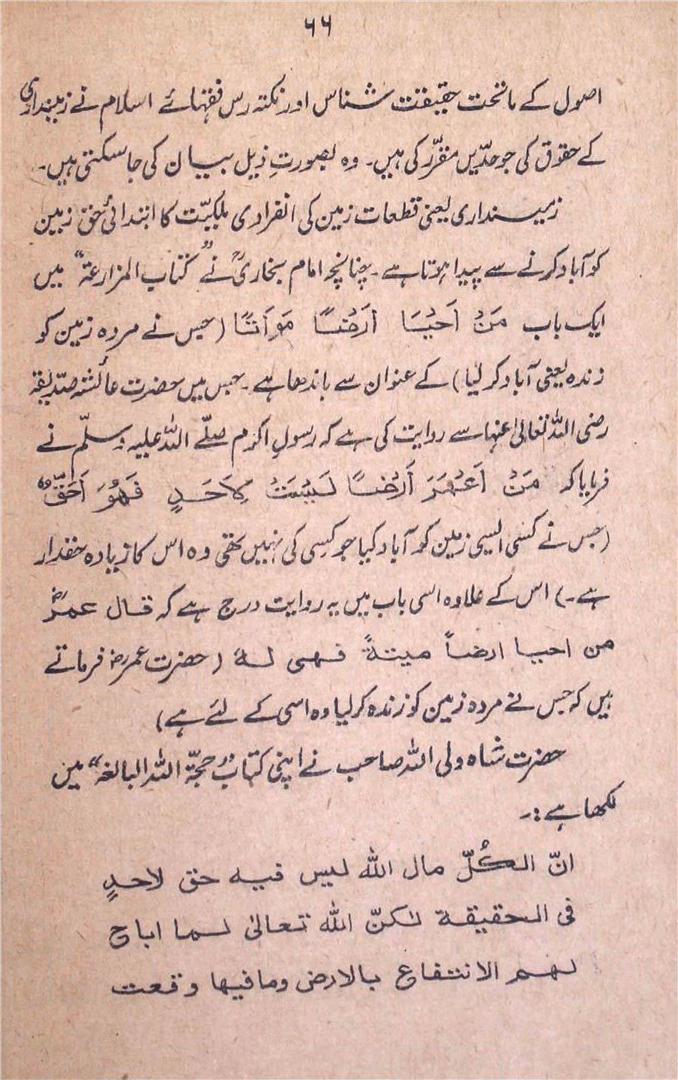 ۶۶
اصول کے ماتحت حقیقت شناس اور نکتہ رس فقہائے اسلام نے زمینداری
کے حقوق کی جو حدّیں مقرّر کی ہیں۔ وہ بصورتِ ذیل بیان کی جاسکتی ہیں۔
زمینداری یعنی قطعات زمین کی انفرادی ملکیّت کا ابتدائی حق زمین
کو آباد کرنے سے پیدا ہوتا ہے۔ چنانچہ امام بخاریؒ نے "کتاب المزارعۃ" میں
ایک باب مَنْ اَحْیَا اَرْضًا مَوَاتًا (جس نے مردہ زمین کو
زندہ یعنی آباد کر لیا) کے عنوان سے باندھا ہے۔ جس میں حضرت عائشہ صدیقہ
رضی اللہ تعالیٰ عنہا سے روایت کی ہے کہ رسول اکرم صلّے اللہ علیہ وسلّم نے
فرمایا کہ مَنْ اَعْمَرَ اَرْضًا لَیْسَتْ لِاَحَدٍ فَھُوَ اَحَقُّ
(جس نے کسی ایسی زمین کو آباد کیا جو کسی کی نہیں تھی وہ اس کا زیادہ حقدار
ہے۔) اس کے علاوہ اسی باب میں یہ روایت درج ہے کہ قال عمرؓ
من احیا ارضاً میتۃً فھی لہٗ (حضرت عمرؓ فرماتے
ہیں کہ جس نے مردہ زمین کو زندہ کر لیا وہ اسی کے لئے ہے)
حضرت شاہ ولی اللہ صاحب نے اپنی کتاب "حجۃ اللہ البالغہ" میں
لکھا ہے:۔
انّ الکُلّ مال اللہ لیس فیہ حق لاحدٍ
فی الحقیقۃ لٰکنّ اللہ تعالیٰ لما اباح
لھم الانتفاع بالارض ومافیھا وقعت